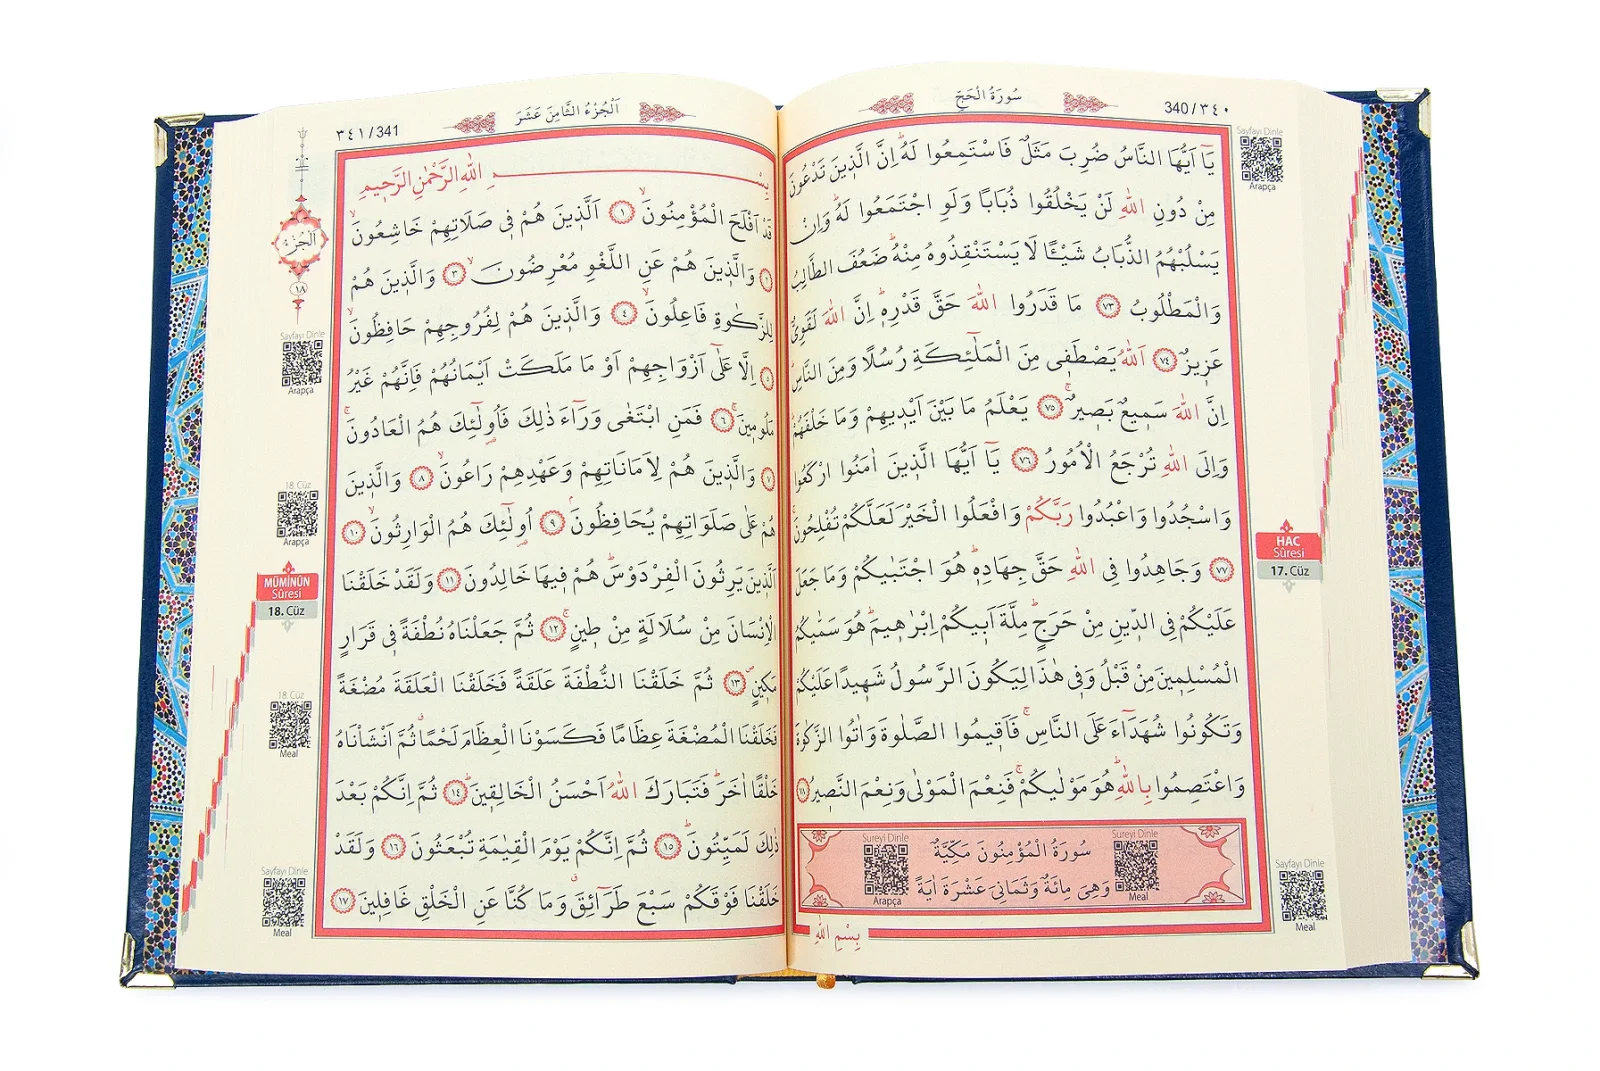 سُورَةُ الْحَجّ
340/٣٤٠
يَٓا اَيُّهَا النَّاسُ ضُرِبَ مَثَلٌ فَاسْتَمِعُوا لَهُۜ اِنَّ الَّذ۪ينَ تَدْعُونَ
مِنْ دُونِ اللّٰهِ لَنْ يَخْلُقُوا ذُبَابًا وَلَوِ اجْتَمَعُوا لَهُۜ وَاِنْ
يَسْلُبْهُمُ الذُّبَابُ شَيْـًٔا لَا يَسْتَنْقِذُوهُ مِنْهُۜ ضَعُفَ الطَّالِبُ
وَالْمَطْلُوبُ ٧٣ مَا قَدَرُوا اللّٰهَ حَقَّ قَدْرِه۪ۜ اِنَّ اللّٰهَ لَقَوِيٌّ
عَز۪يزٌ ٧٤ اَللّٰهُ يَصْطَف۪ي مِنَ الْمَلٰٓئِكَةِ رُسُلًا وَمِنَ النَّاسِۜ
اِنَّ اللّٰهَ سَم۪يعٌ بَص۪يرٌۚ ٧٥ يَعْلَمُ مَا بَيْنَ اَيْد۪يهِمْ وَمَا خَلْفَهُمْۜ
وَاِلَى اللّٰهِ تُرْجَعُ الْاُمُورُ ٧٦ يَٓا اَيُّهَا الَّذ۪ينَ اٰمَنُوا ارْكَعُوا
وَاسْجُدُوا وَاعْبُدُوا رَبَّكُمْ وَافْعَلُوا الْخَيْرَ لَعَلَّكُمْ تُفْلِحُونَۚ
٧٧ وَجَاهِدُوا فِي اللّٰهِ حَقَّ جِهَادِه۪ۜ هُوَ اجْتَبٰيكُمْ وَمَا جَعَلَ
عَلَيْكُمْ فِي الدّ۪ينِ مِنْ حَرَجٍۜ مِلَّةَ اَب۪يكُمْ اِبْرٰه۪يمَۜ هُوَ سَمّٰيكُمُ
الْمُسْلِم۪ينَ مِنْ قَبْلُ وَف۪ي هٰذَا لِيَكُونَ الرَّسُولُ شَه۪يدًا عَلَيْكُمْ
وَتَكُونُوا شُهَدَٓاءَ عَلَى النَّاسِۚ فَاَق۪يمُوا الصَّلٰوةَ وَاٰتُوا الزَّكٰوةَ
وَاعْتَصِمُوا بِاللّٰهِۜ هُوَ مَوْلٰيكُمْۚ فَنِعْمَ الْمَوْلٰى وَنِعْمَ النَّص۪يرُ
سُورَةُ الْمُؤْمِنُونَ مَكِّيَّةٌ
وَهِيَ مِائَةٌ وَثَمَانِيَ عَشْرَةَ اٰيَةً
Sureyi Dinle
Arapça
Sureyi Dinle
Meal
بِسْمِ اللّٰهِ
Sayfayı Dinle
Arapça
HAC
Sûresi
17. Cüz
Sayfayı Dinle
Meal
اَلْجُزْءُ الثَّامِنَ عَشَرَ
٣٤١/341
بِسْمِ اللّٰهِ الرَّحْمٰنِ الرَّح۪يمِ
قَدْ اَفْلَحَ الْمُؤْمِنُونَۙ ١ اَلَّذ۪ينَ هُمْ ف۪ي صَلَاتِهِمْ خَاشِعُونَۙ
٢ وَالَّذ۪ينَ هُمْ عَنِ اللَّغْوِ مُعْرِضُونَۙ ٣ وَالَّذ۪ينَ هُمْ
لِلزَّكٰوةِ فَاعِلُونَۙ ٤ وَالَّذ۪ينَ هُمْ لِفُرُوجِهِمْ حَافِظُونَۙ
٥ اِلَّا عَلٰٓى اَزْوَاجِهِمْ اَوْ مَا مَلَكَتْ اَيْمَانُهُمْ فَاِنَّهُمْ غَيْرُ
مَلُوم۪ينَۚ ٦ فَمَنِ ابْتَغٰى وَرَٓاءَ ذٰلِكَ فَاُو۬لٰٓئِكَ هُمُ الْعَادُونَۚ
٧ وَالَّذ۪ينَ هُمْ لِاَمَانَاتِهِمْ وَعَهْدِهِمْ رَاعُونَۙ ٨ وَالَّذ۪ينَ
هُمْ عَلٰى صَلَوَاتِهِمْ يُحَافِظُونَۘ ٩ اُو۬لٰٓئِكَ هُمُ الْوَارِثُونَۙ ١٠
اَلَّذ۪ينَ يَرِثُونَ الْفِرْدَوْسَۜ هُمْ ف۪يهَا خَالِدُونَ ١١ وَلَقَدْ خَلَقْنَا
الْاِنْسَانَ مِنْ سُلَالَةٍ مِنْ ط۪ينٍۚ ١٢ ثُمَّ جَعَلْنَاهُ نُطْفَةً ف۪ي قَرَارٍ
مَك۪ينٍۖ ١٣ ثُمَّ خَلَقْنَا النُّطْفَةَ عَلَقَةً فَخَلَقْنَا الْعَلَقَةَ مُضْغَةً
فَخَلَقْنَا الْمُضْغَةَ عِظَامًا فَكَسَوْنَا الْعِظَامَ لَحْمًاۗ ثُمَّ اَنْشَأْنَاهُ
خَلْقًا اٰخَرَۜ فَتَبَارَكَ اللّٰهُ اَحْسَنُ الْخَالِق۪ينَۜ ١٤ ثُمَّ اِنَّكُمْ بَعْدَ
ذٰلِكَ لَمَيِّتُونَۜ ١٥ ثُمَّ اِنَّكُمْ يَوْمَ الْقِيٰمَةِ تُبْعَثُونَ ١٦ وَلَقَدْ
خَلَقْنَا فَوْقَكُمْ سَبْعَ طَرَٓائِقَۗ وَمَا كُنَّا عَنِ الْخَلْقِ غَافِل۪ينَ ١٧
اَلْجُزْءُ
١٨
Sayfayı Dinle
Arapça
18. Cüz
Arapça
MÜMİNÛN
Sûresi
18. Cüz
18. Cüz
Meal
Sayfayı Dinle
Meal